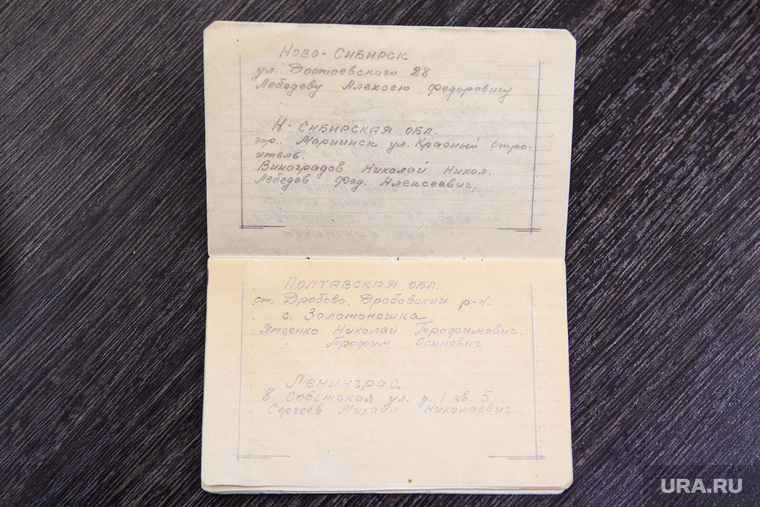 Ново-Сибирск
ул. Достоевского 28
Лебедеву Алексею Федоровичу
Н-Сибирская обл.
гор. Мариинск ул. Красный стро-
итель.
Виноградов Николай Никол.
Лебедев Фед. Алексеевич.
Полтавская обл.
ст. Дробово, Дробовский р-н.
с. Золотоношка
Ятченко Николай Трофимович.
" Трофим Осипович
Ленинград.
8. Советская ул. д. 1 кв. 5.
Сергеев Михаил Николаевич
URA.RU